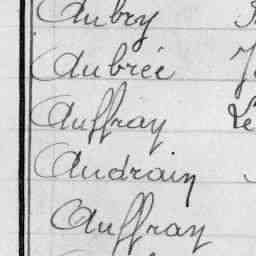 Aubry
Aubrée
Auffray Le
Audrain
Auffray